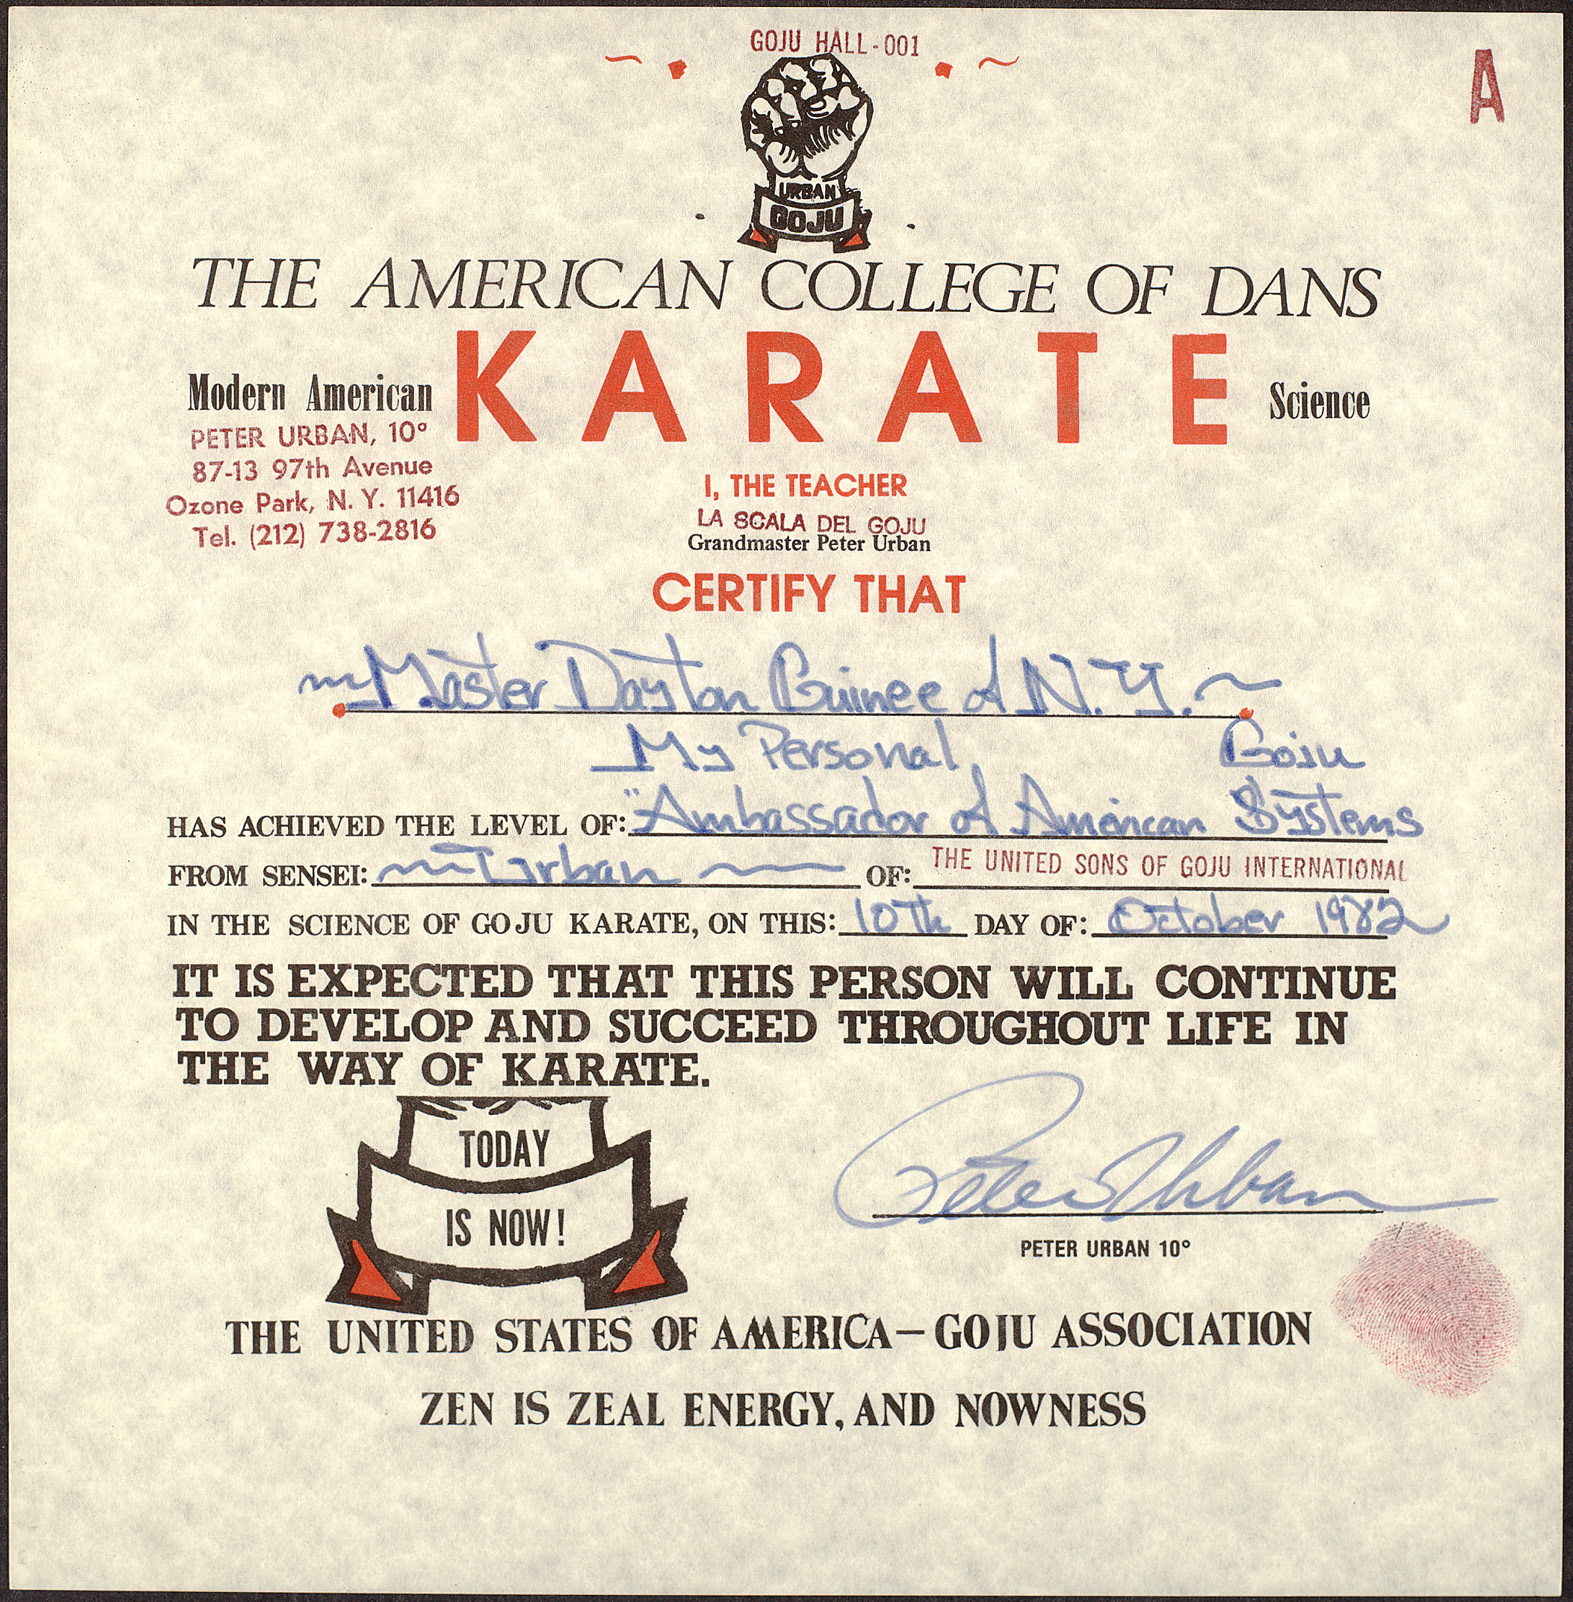 GOJU HALL-001
A
URBAN
GOJU
THE AMERICAN COLLEGE OF DANS
KARATE
Modern American
Science
PETER URBAN, 10°
87-13 97th Avenue
Ozone Park, N. Y. 11416
Tel. (212) 738-2816
I, THE TEACHER
LA SCALA DEL GOJU
Grandmaster Peter Urban
CERTIFY THAT
Master Dayton Guinee of N.Y.
My Personal
Goju
HAS ACHIEVED THE LEVEL OF: "Ambassador of American Systems
FROM SENSEI: Urban OF: THE UNITED SONS OF GOJU INTERNATIONAL
IN THE SCIENCE OF GOJU KARATE, ON THIS: 10Th DAY OF: October 1982
IT IS EXPECTED THAT THIS PERSON WILL CONTINUE
TO DEVELOP AND SUCCEED THROUGHOUT LIFE IN
THE WAY OF KARATE.
TODAY
IS NOW!
Peter Urban
PETER URBAN 10°
THE UNITED STATES OF AMERICA—GOJU ASSOCIATION
ZEN IS ZEAL ENERGY, AND NOWNESS